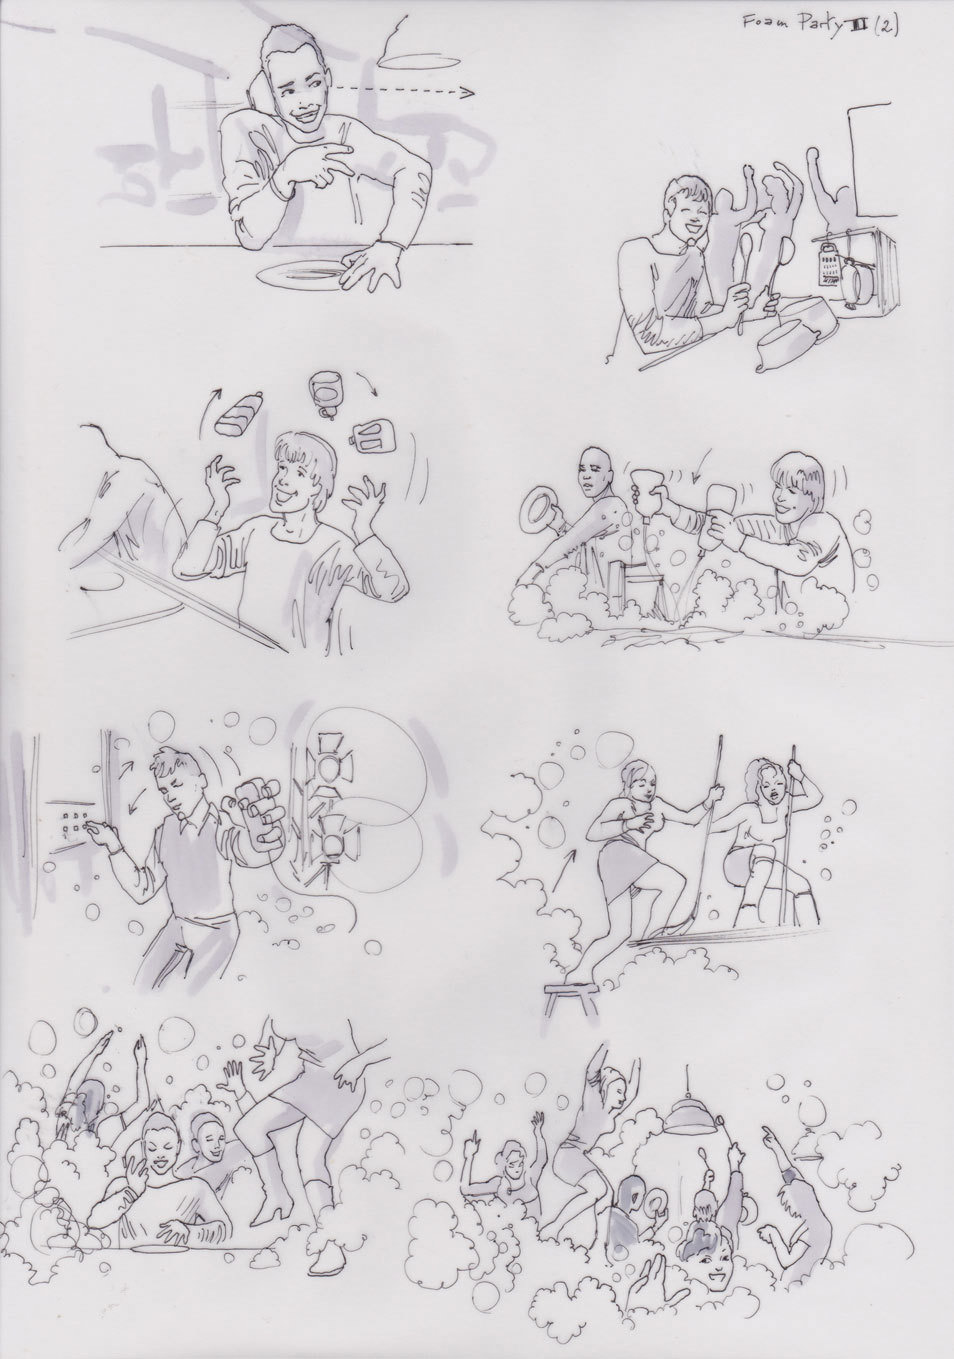 Foam Party III (2)